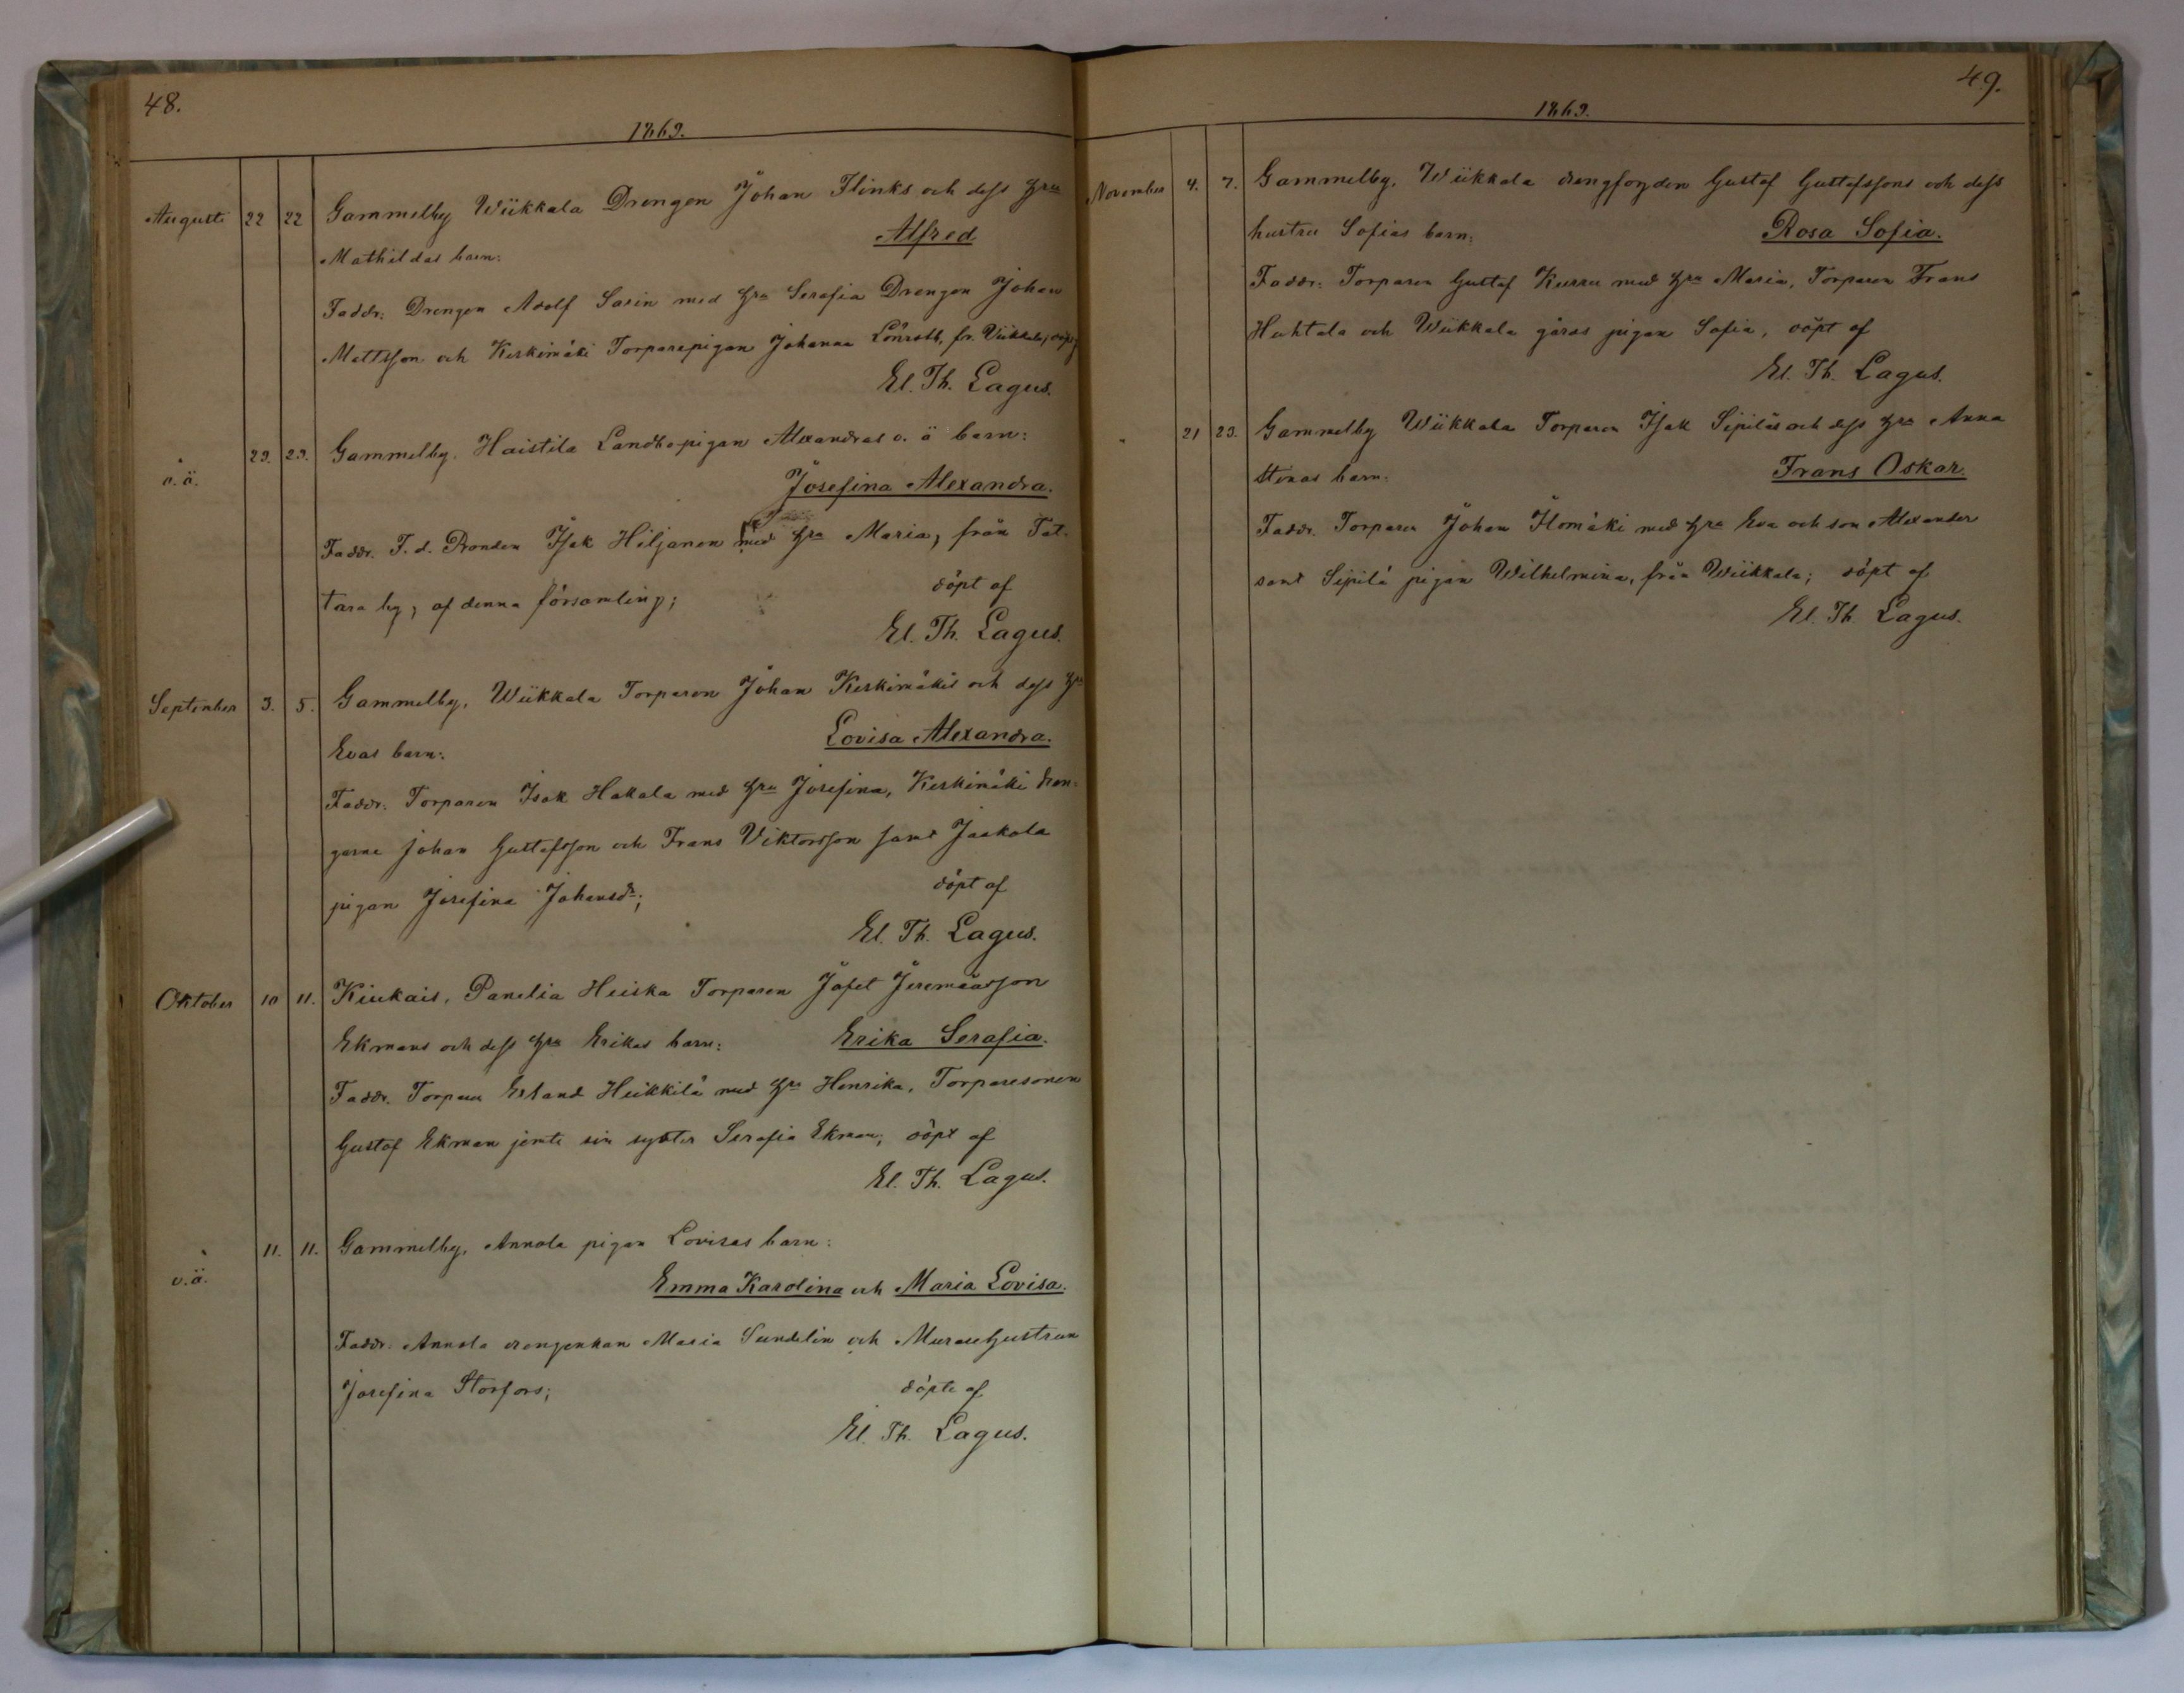 48.
1869.
Augusti 22 22 Gammelby Wiikkala Drengen Johan Flinks och dess Hru
Mathildas barn: Alfred
Faddr: Drengen Adolf Sarin med Hru Serafia Drengen Johan
Mattsson och Keskimäki Torparepigan Johanna Lönroth, fr. Viikkala; döpt af
El. Th. Lagus.
" 29. 29. Gammelby. Haistila Landbopigan Alexandras o. ä barn:
o.ä. Josefina Alexandra.
Faddr. F. d. Bonden Isak Hiljanen med Hru Maria, från Tat-
tara by, af denna församling; döpt af
El. Th. Lagus.
September 3. 5. Gammelby, Wiikkala Torparen Johan Keskimäkis och dess Hru
Evas barn: Lovisa Alexandra.
Faddr. Torparen Isak Hakala med Hru Josefina, Keskimäki dren-
garne Johan Gustafsson och Frans Viktorsson samt Jaakola
pigan Josefina Johansdr; döpt af
El. Th. Lagus.
Oktober 10 11. Kiukais, Panelia Heiska Torparen Jafet Jeremiasson
Ekmans och dess Hru Erikas barn: Erika Serafia.
Faddr. Torparen Erland Heikkilä med Hru Henrika, Torparesonen
Gustaf Ekman jemte sin syster Serafia Ekman; döpt af
El. Th. Lagus.
" 11. 11. Gammelby, Annola pigan Lovisas barn:
o.ä. Emma Karolina och Maria Lovisa.
Faddr. Annola drengenkan Maria Sundelin och Murarehustrun
Josefina Storfors; döpte af
El. Th. Lagus.
49.
1869.
November 4. 7. Gammelby, Wiikkala drengfogden Gustaf Gustafssons och dess
hustru Sofias barn: Rosa Sofia.
Faddr: Torparen Gustaf Kurru med Hru Maria, Torparen Frans
Huhtala och Wiikkala gårds pigan Sofia, döpt af
El. Th. Lagus.
" 21 23. Gammelby Wiikkala Torparen Isak Sipiläs och dess Hru Anna
Stinas barn: Frans Oskar.
Faddr. Torparen Johan Ilomäki med Hru Eva och son Alexander
samt Sipilä pigan Wilhelmina, från Wiikkala; döpt af
El. Th. Lagus.